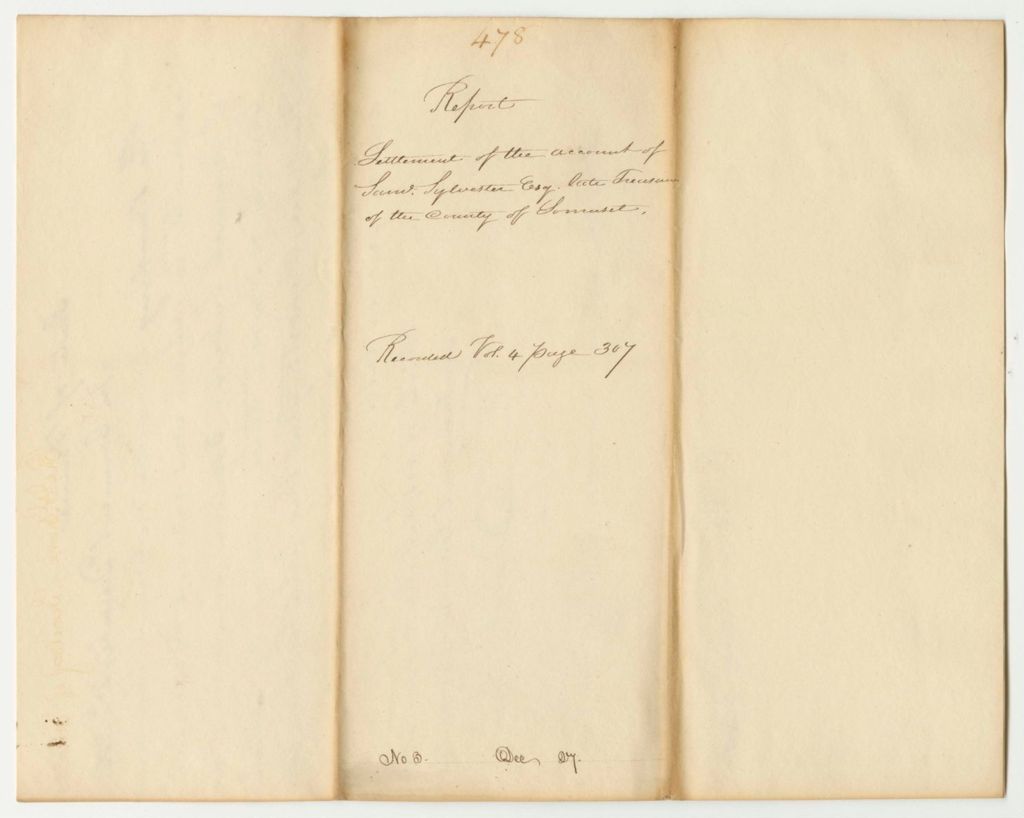 478
Report
Settlement of the account of
Saml. Sylvester Esq. late Treasurer
of the County of Somerset.
Recorded Vol. 4 page 307
No 3. Dec 27.